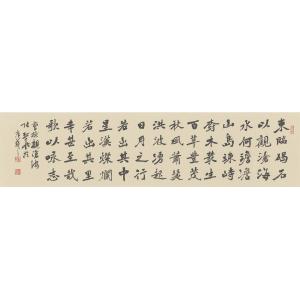 東臨碣石
以觀滄海
水何澹澹
山島竦峙
樹木叢生
百草豐茂
秋風蕭瑟
洪波湧起
日月之行
若出其中
星漢燦爛
若出其里
幸甚至哉
歌以咏志
曹操觀滄海